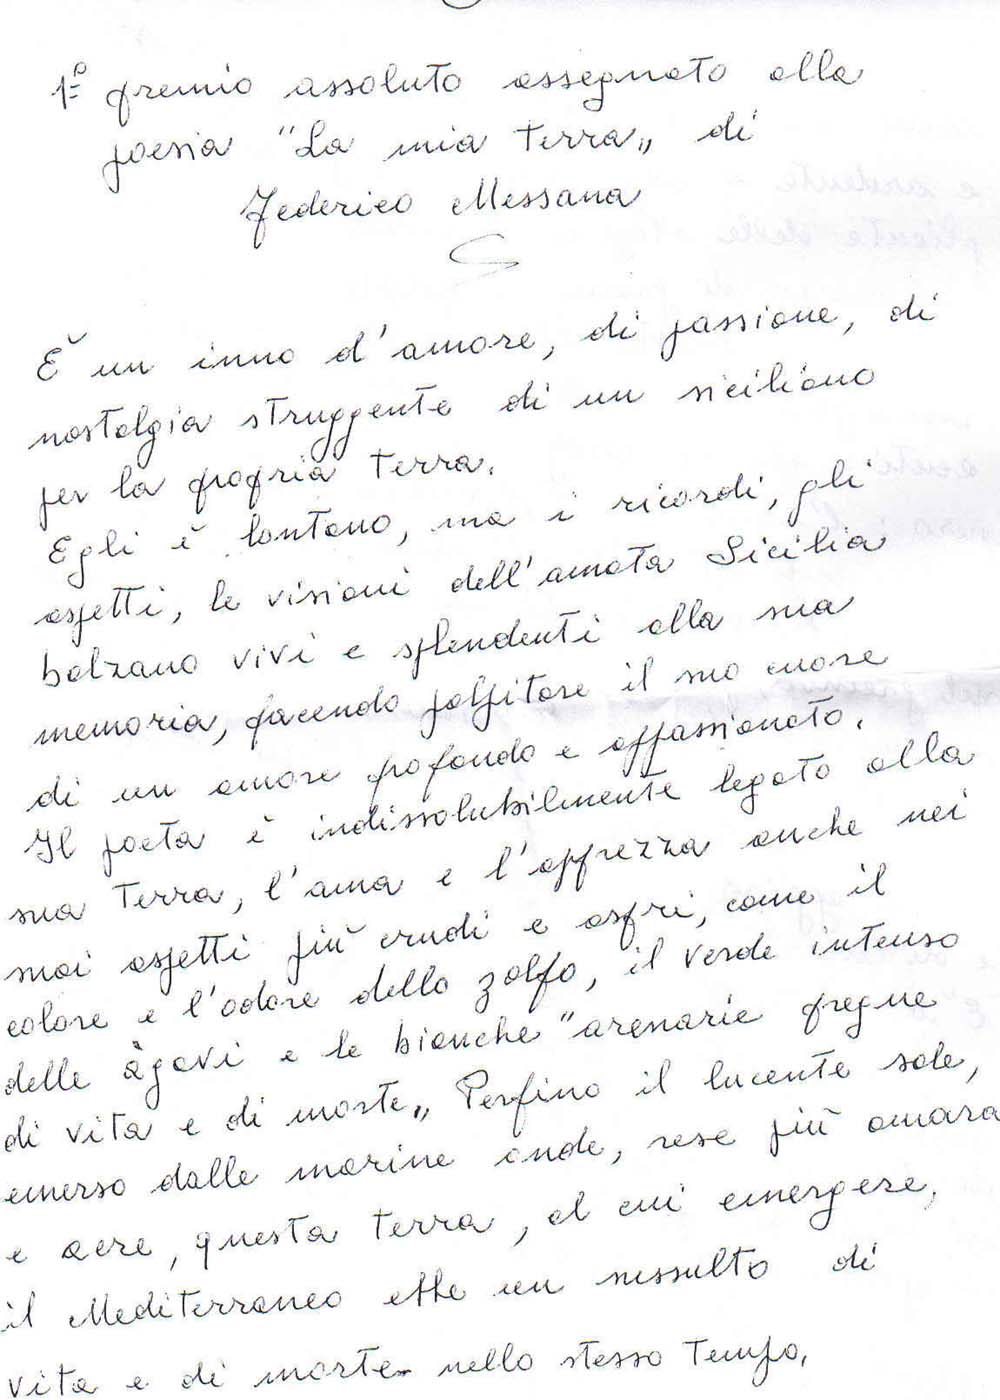 1º premio assoluto assegnato alla
poesia "La mia terra„ di
Federico Messana
È un inno d'amore, di passione, di
nostalgia struggente di un siciliano
per la propria terra.
Egli è lontano, ma i ricordi, gli
aspetti, le visioni dell'amata Sicilia
balzano vivi e splendenti alla sua
memoria, facendo palpitare il suo cuore
di un amore profondo e appassionato.
Il poeta è indissolubilmente legato alla
sua terra, l'ama e l'apprezza anche nei
suoi aspetti più crudi e aspri, come il
colore e l'odore dello zolfo, il verde intenso
delle àgavi e le bianche "arenarie pregne
di vita e di morte„ Perfino il lucente sole,
emerso dalle marine onde, rese più amara
e acre, questa terra, al cui emergere,
il Mediterraneo ebbe un sussulto di
vita e di morte nello stesso tempo,